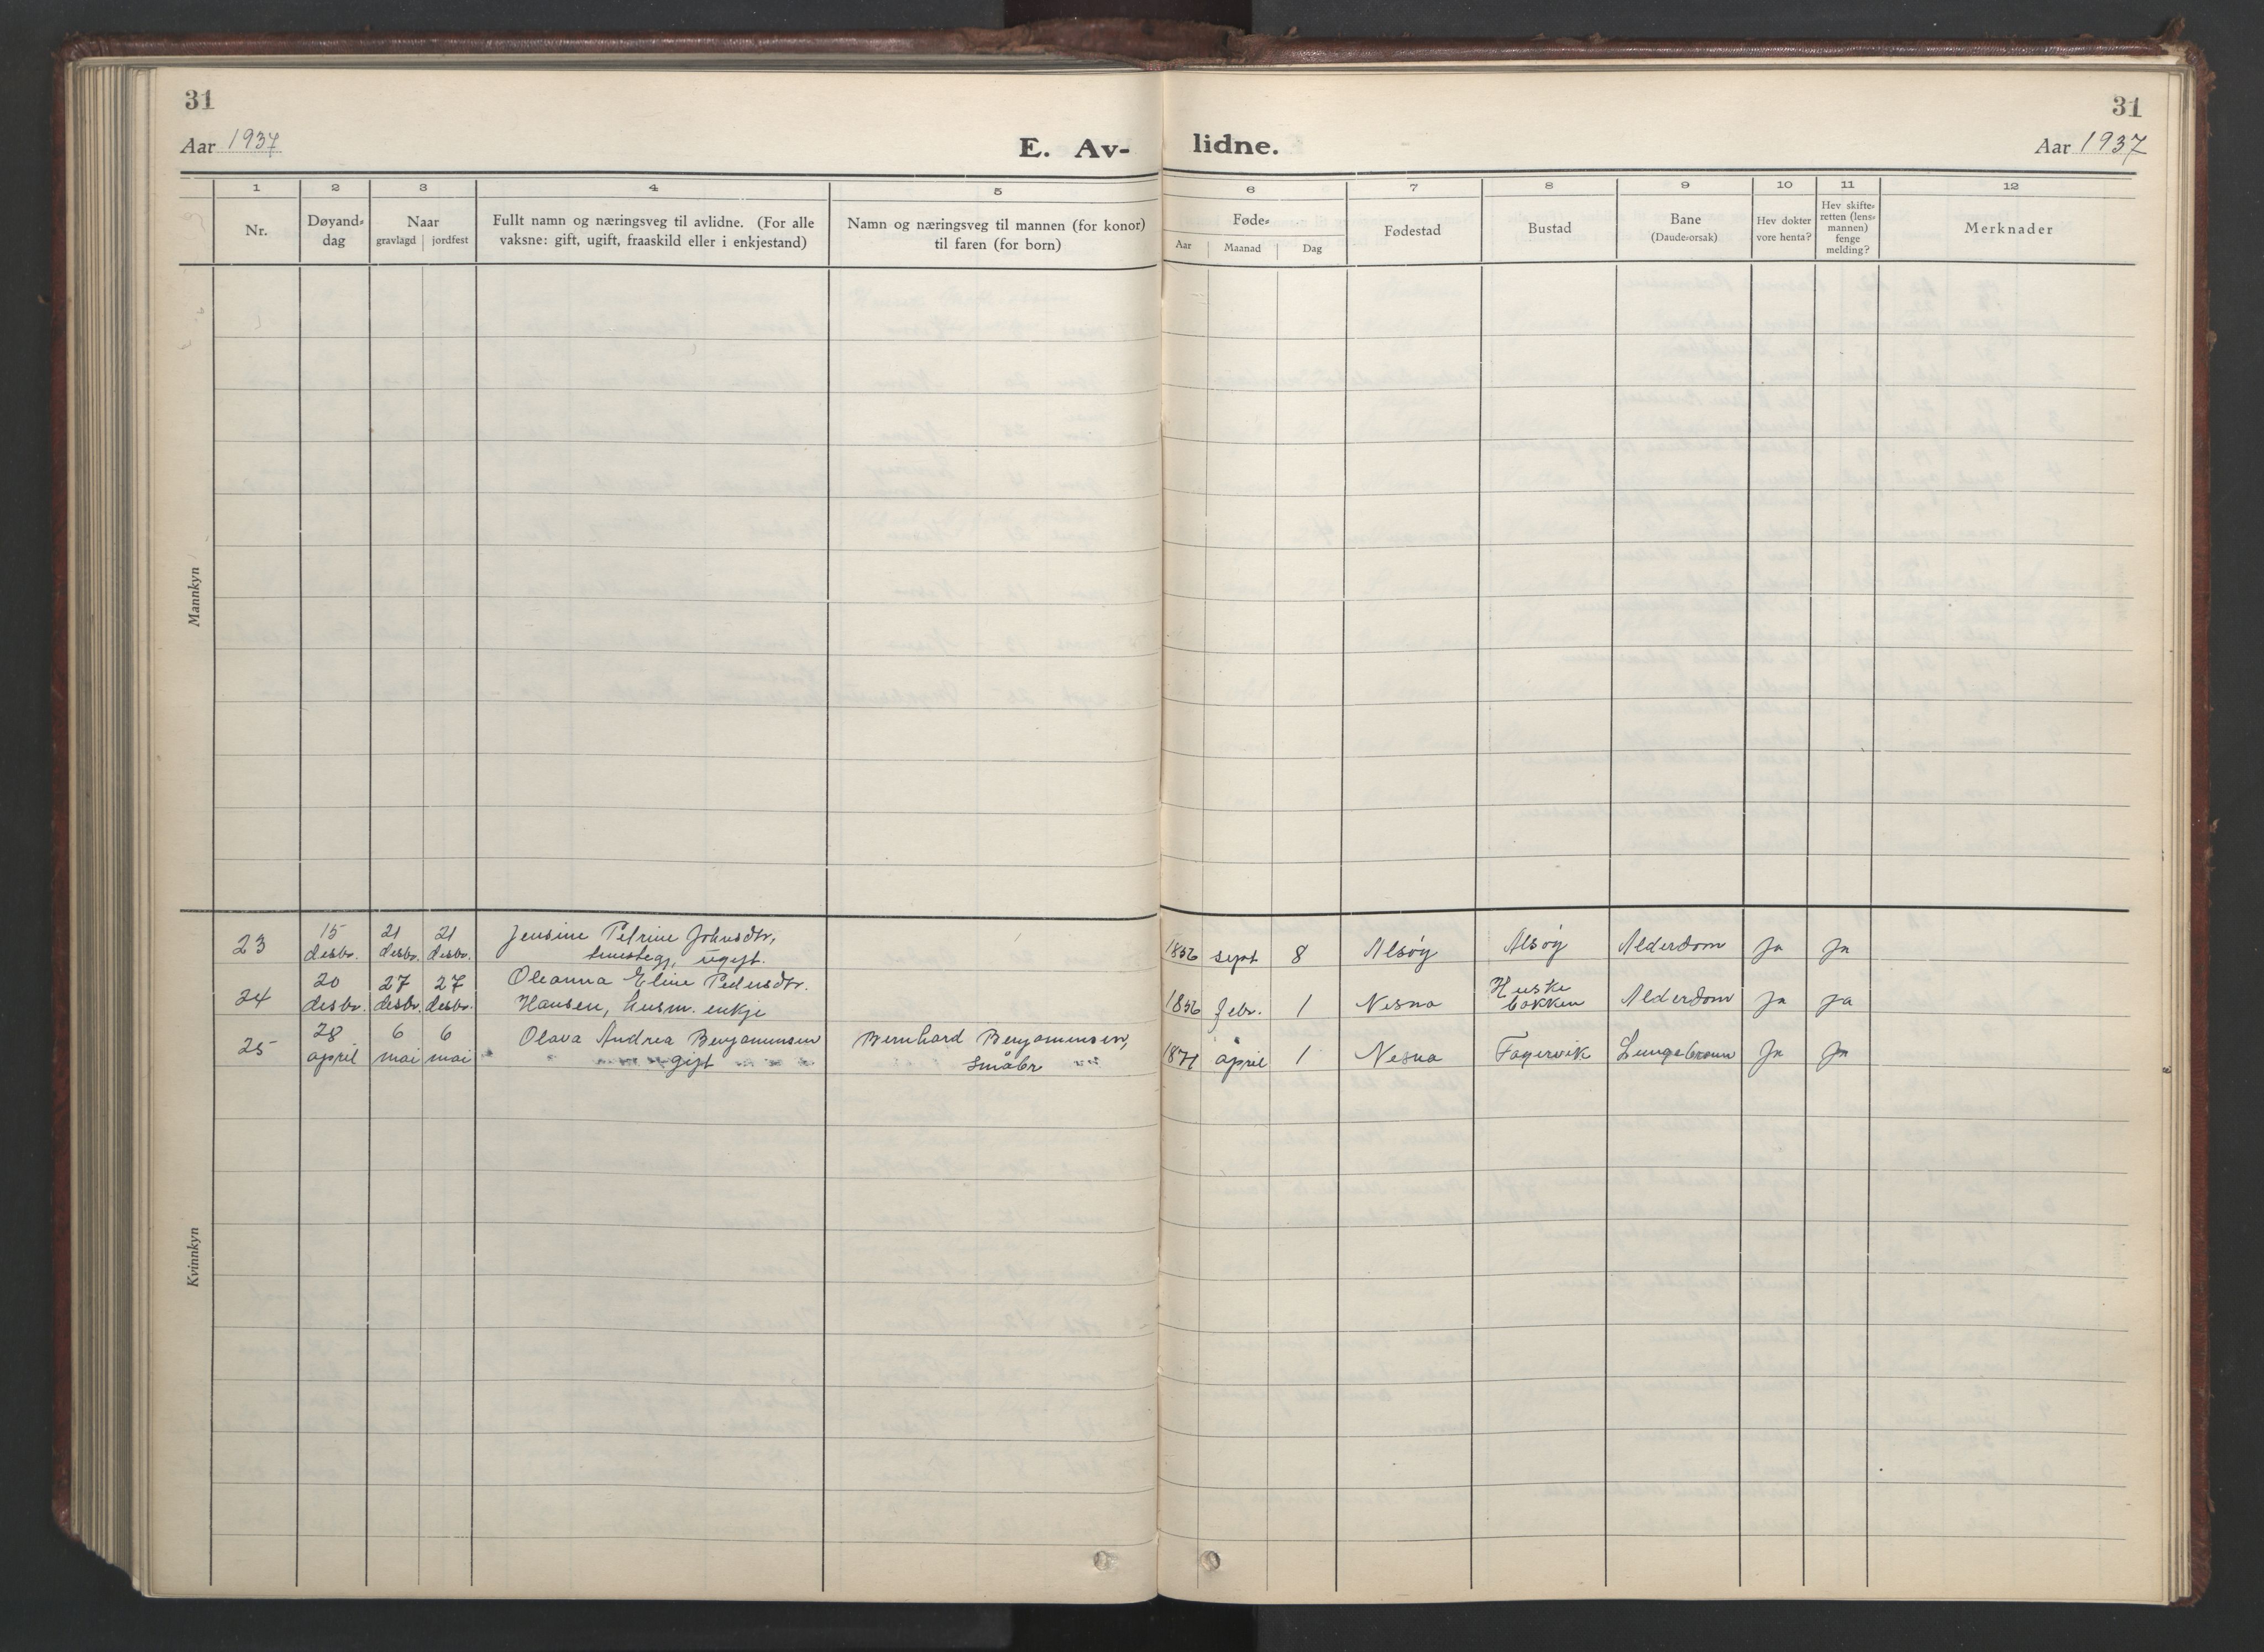 31
31
Aar 1937
E. Av-
lidne.
Aar 1937
1
2
3
4
5
6
7
8
9
10
11
12
Nr.
Døyand-
dag
Naar
gravlagd
jordfest
Fullt namn og næringsveg til avlidne. (For alle
vaksne: gift, ugift, fraaskild eller i enkjestand)
Namn og næringsveg til mannen (for konor)
til faren (for born)
Føde-
Aar
Maanad
Dag
Fødestad
Bustad
Bane
(Daude-orsak)
Hev dokter
vore henta?
Hev skifte-
retten (lens-
mannen)
fenge
melding?
Merknader
Mannkyn
23
15
desbr.
21
desbr.
21
desbr.
Jensine Petrine Johnsdtr,
ugift.
1856
sept
8
Alsøy
Alsøy
Alderdom
Ja
Ja
24
20
desbr.
27
desbr.
27
desbr.
Oleanna Eline Pedersdtr.
Hansen, husm. enkje
1856
febr.
1
Nesna
Huske
bakken
Alderdom
Ja
Ja
25
28
april
6
mai
6
mai
Olava Andrea Benjaminsen
gift
Bernhard Benjaminsen,
Småbr
1871
april
1
Nesna
Fagervik
Lungebrann
Ja
Ja
Kvinnkyn